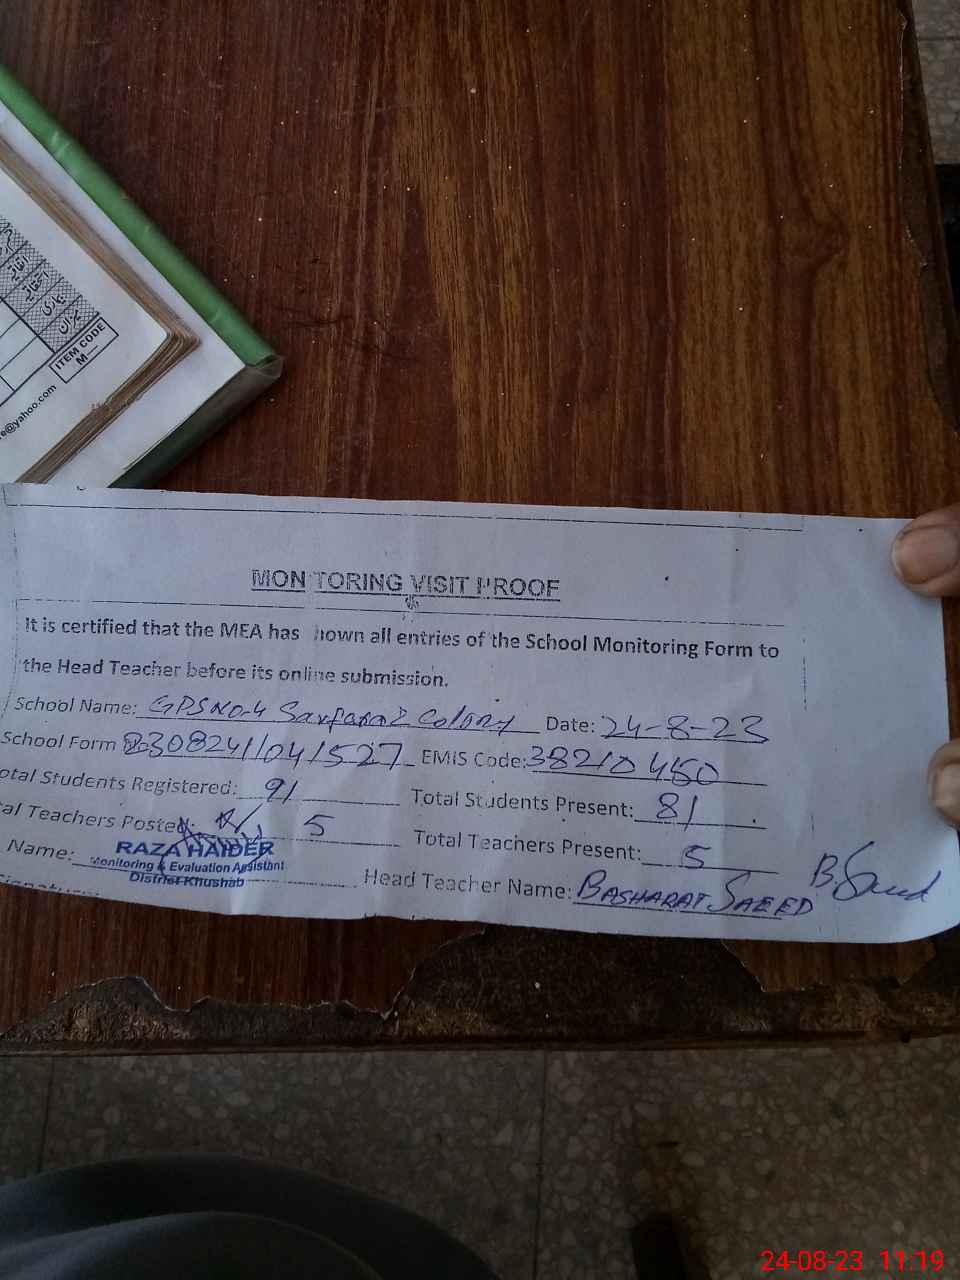 ITEM CODE
M
e@yahoo.com
MONITORING VISIT PROOF
It is certified that the MEA has hown all entries of the School Monitoring Form to
the Head Teacher before its online submission.
School Name: GPS No-4 Sarfaraz Colony Date: 24-8-23
School Form 83082411041527 EMIS Code: 38210450
otal Students Registered: 91 Total Students Present: 81
al Teachers Posted: 5 Total Teachers Present: 5
Name: RAZA HAIDER
Monitoring & Evaluation Assistant
District Khushab
Head Teacher Name: BASHARAT SAEED B. Saeed
24-08-23 11:19